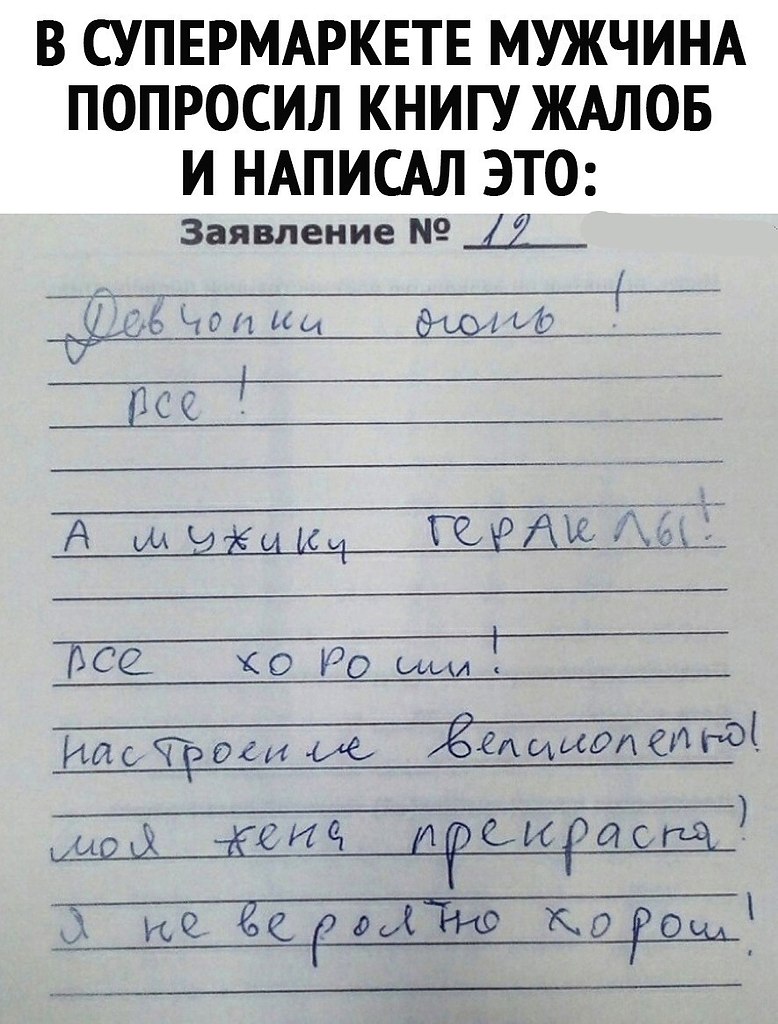 В СУПЕРМАРКЕТЕ МУЖЧИНА
ПОПРОСИЛ КНИГУ ЖАЛОБ
И НАПИСАЛ ЭТО:
Заявление № 12
Девчонки огонь!
все!
А мужики гераклы!
все хороши!
настроение великолепно!
моя жена прекрасна!
Я не вероятно хорош!